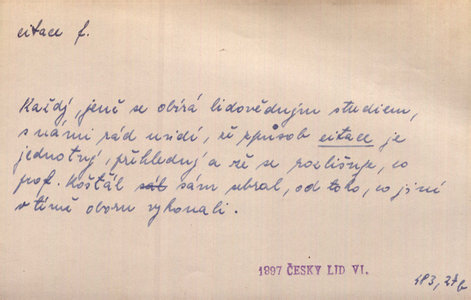 citace f.
Každý, jenž se obírá lidovědným studiem,
s námi rád uzná, že způsob citace je
jednotný, přehledný a že se rozlišuje, co
prof. Košťál sál sám sebral, od toho, co jiní
v témž oboru vykonali.
1897 ČESKÝ LID VI.
483, 27b